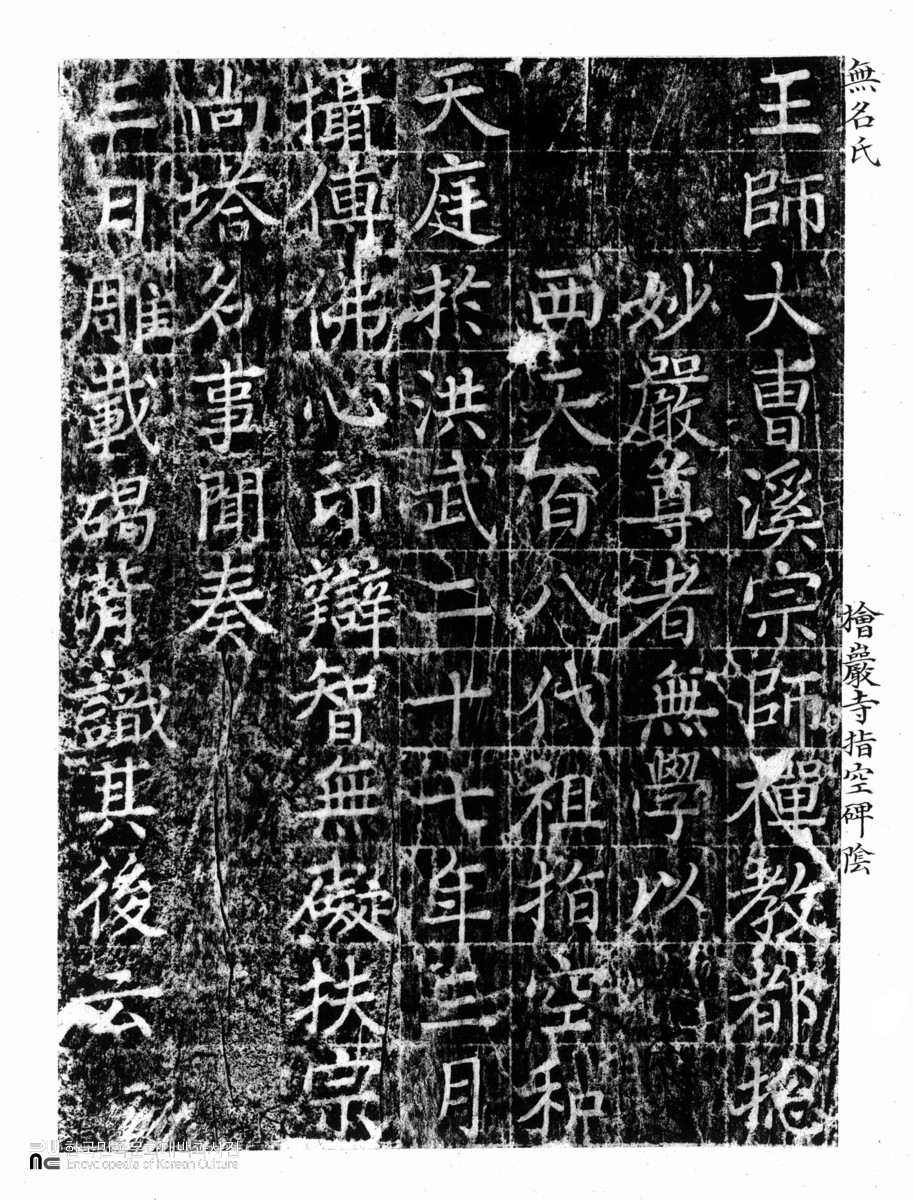 無名氏
檜巖寺指空碑陰
王師大曺溪宗師禪教都捴
妙嚴尊者無學以
西天百八代祖指空和
天庭於洪武二十七年三月
攝傳佛心印辯智無礙扶宗
尚塔名事聞奏
三日雕載碣背識其後云
한국민족문화대백과사전
Encyclopedia of Korean Culture